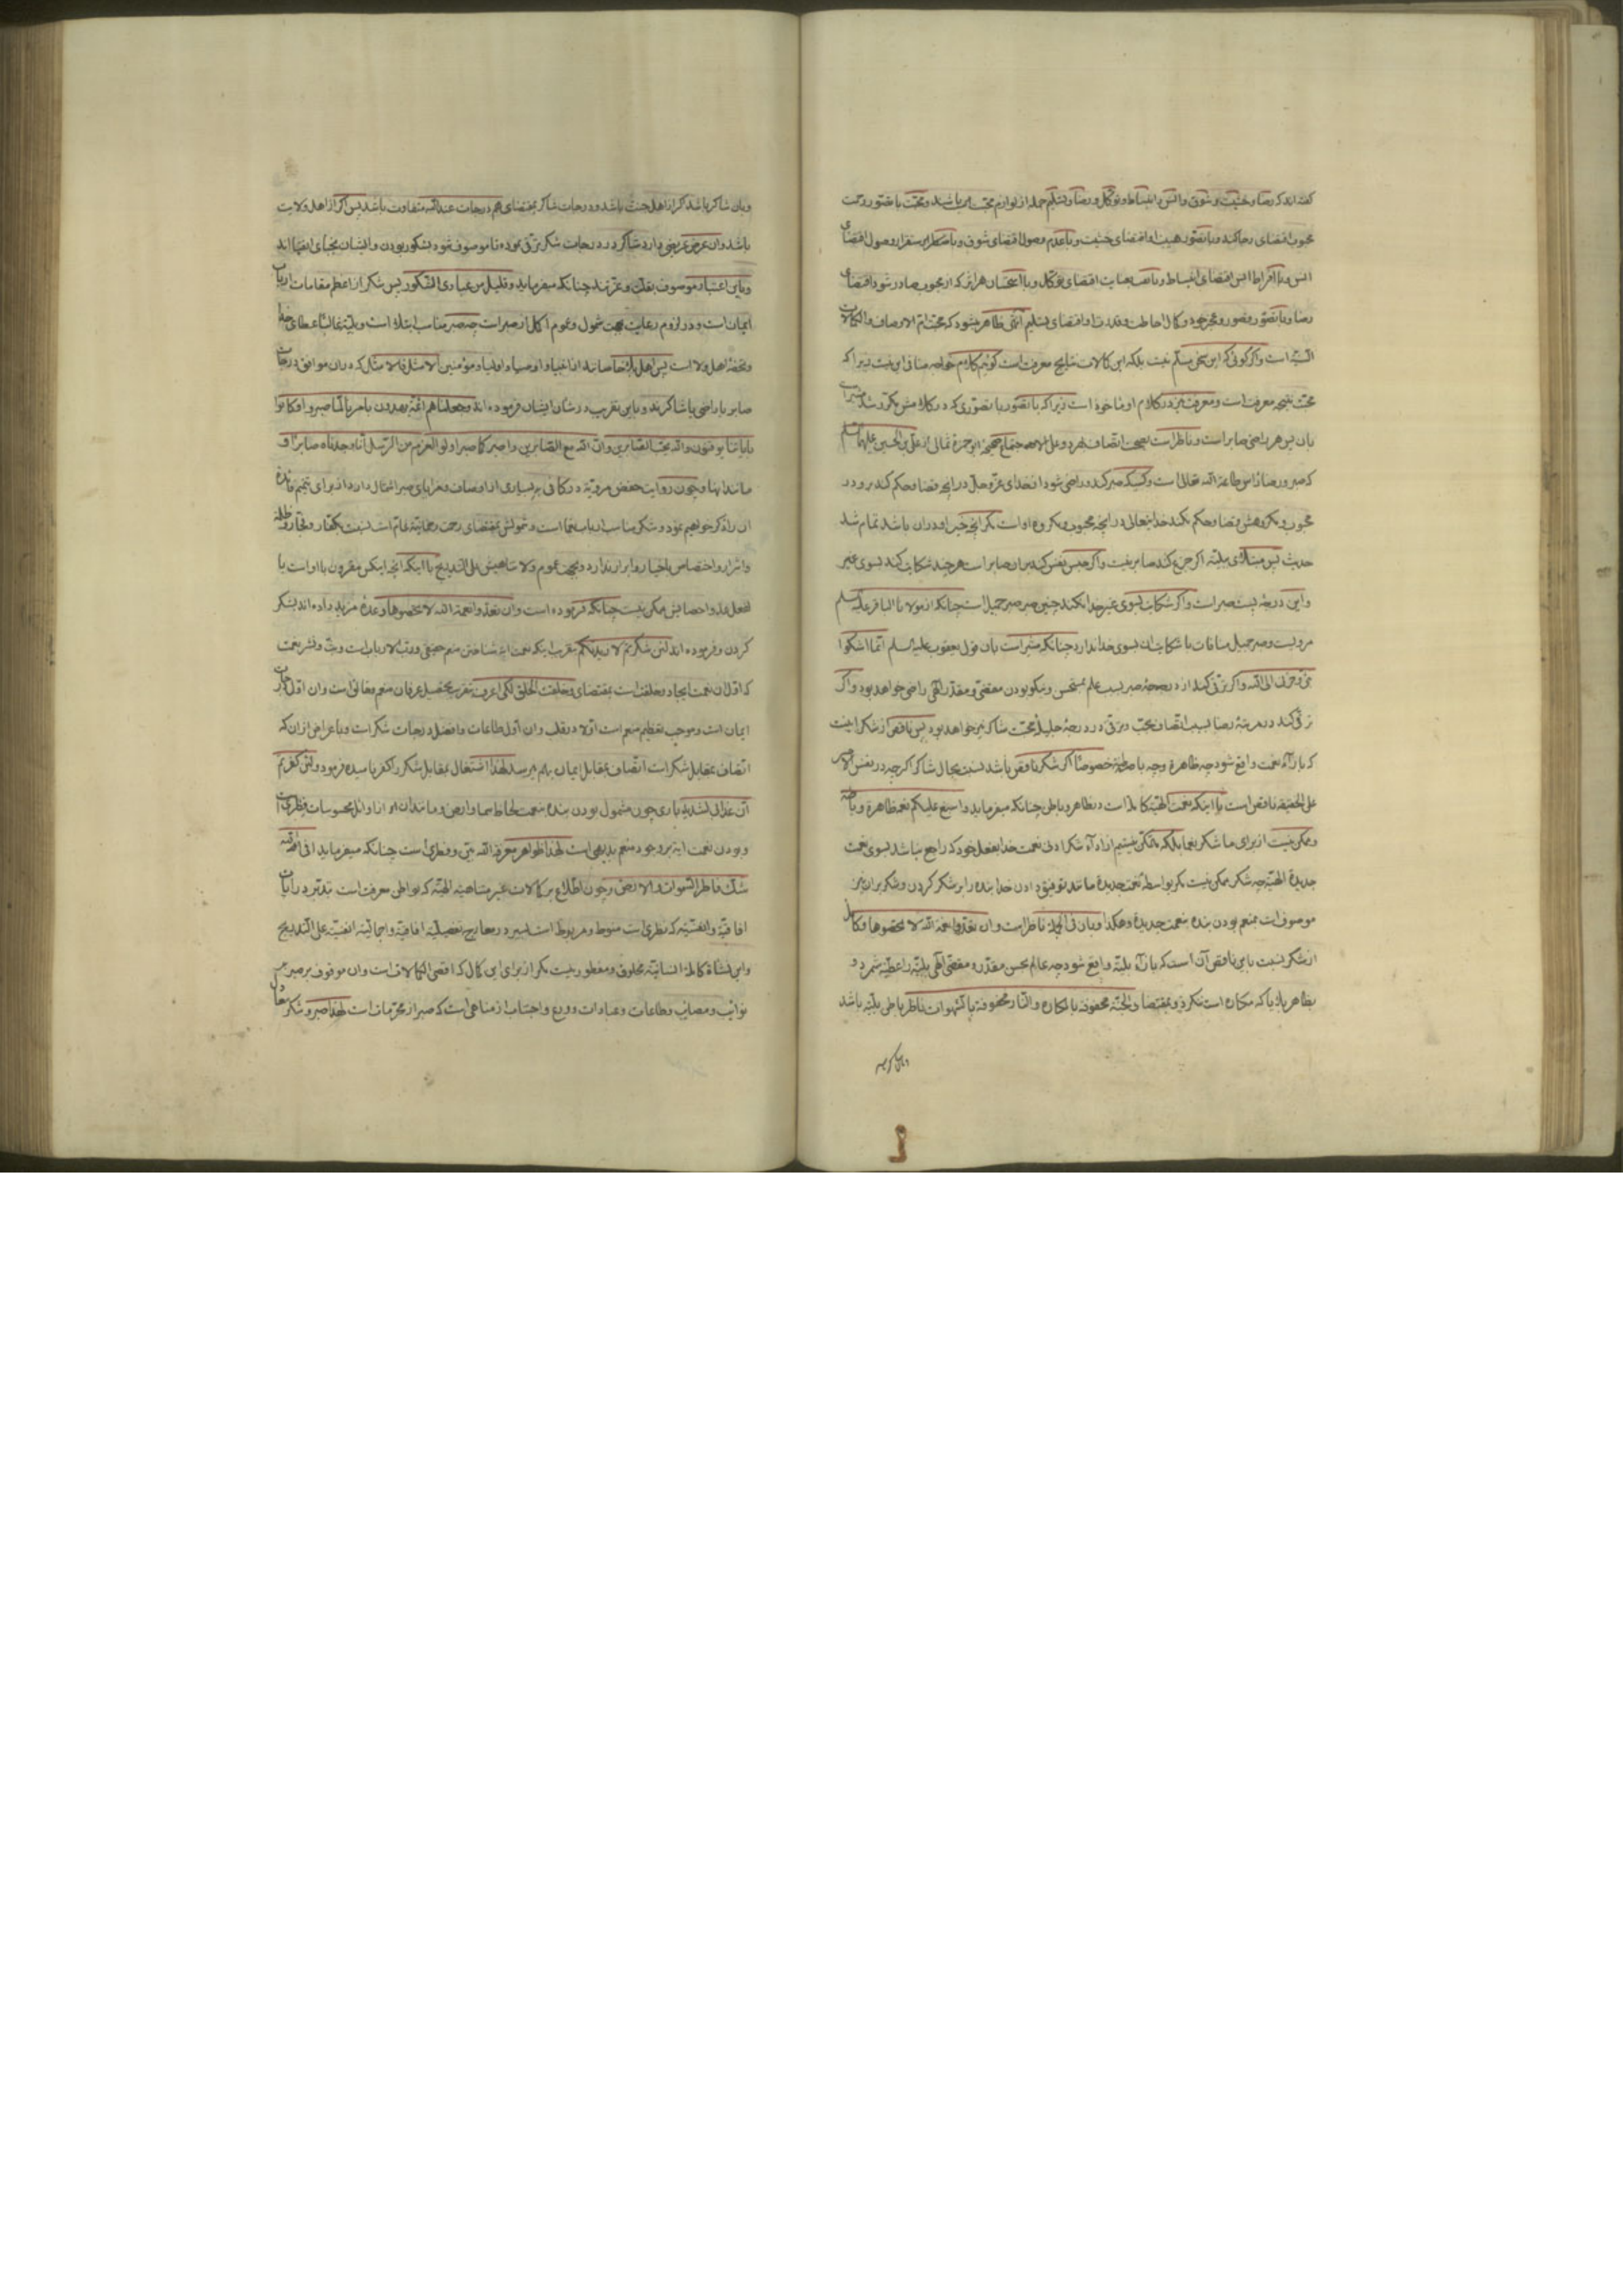 گفته‌اند که رضا و خشیت و شوق و انس و انبساط و توکل و رضا و تسلیم جمله از لوازم محبت می‌باشند و محبت با تصور رحمت
محبوب اقتضای رجا کند و با تصور هیبت او اقتضای خشیت و با عدم وصول اقتضای شوق و با استقرار وصول اقتضای
انس و با افراط انس اقتضای انبساط و با عنایت اقتضای توکل و با استحسان هر اثر که از محبوب صادر شود اقتضای
رضا و با تصور قصور و عجز خود و کمال احاطت و قدرت او اقتضای تسلیم انتهی ظاهر میشود که محبت ام الاوصاف والکمالات
است و اگر گوئی که این سخن مسلم نیست بلکه این کمالات نتایج معرفت است گوئیم کلام خواجه منافی این نیست زیرا که
محبت نتیجه معرفت است و معرفت نیز در کلام او ماخوذ است زیرا که با تصور یا تصوری که در کلامش مکرر شد
بان پس هر راضی صابر است و ناظر است ابی حمزه ثمالی از علی بن الحسین علیهما السلم
که صبر و رضا راس طاعة الله تعالی است و کسیکه صبر کند و راضی شود از خدای عز و جل در انچه قضا و حکم کند برو در
محبوب و مکروهش قضا و حکم نکند خدایتعالی در انچه محبوب و مکروه او است مگر انچه خیر او در ان باشد تمام شد
حدیث پس مبتلای ببلیه اگر جزع کند صابر نیست و اگر حبس نفس کند بران صابر است هر چند شکایت کند بسوی غیر
و این درجهٔ پست صبر است و اگر شکایت بسوی غیر خدا نکند چنین صبر صبر جمیل است چنانکه از مولانا الباقر علیه السلم
مرویست و صبر جمیل منافات با شکایت ان بسوی خدا ندارد چنانکه مشیر است بان قول یعقوب علیه السلم انما اشکوا
بثی و حزنی الی الله و اگر ترقی کند از درجهٔ صبر بسبب علم بمستحسن و نیکو بودن مقتضی و مقدر الهی راضی خواهد بود و اگر
ترقی کند در مرتبهٔ رضا بسبب اتصاف بمحبت و ترقی در درجهٔ جلیلهٔ محبت شاکر نیز خواهد بود پس ناقص از شکر اینست
که بازآء نعمت واقع شود چه ظاهره و چه باطنه خصوصا اگر شکر ناقص باشد نسبت بحال شاکر اگر چه در نفس الامر
علی الحقیقه ناقص است با اینکه نعمت الهیه کامله است در ظاهر و باطن چنانکه میفرماید و اسبغ علیکم نعمه ظاهرة و باطنة
و ممکن نیست از برای ما شکر نعما بلکه متمکن نیستیم از ادآء شکر ادنی نعمت خدا بفعل خود که راجع میباشد بسوی نعمت
جدیدهٔ الهیه چه شکر ممکن نیست مگر بواسطهٔ نعمت جدیده مانند توفیق دادن خدا بنده را بر شکر کردن و شکر بران نیز
موصوف است بمنعم بودن بنده بنعمت جدیده وهکذا و بان فی الجمله ناظر است و ان تعدوا نعمة الله لا تحصوها و کامل
از شکر نسبت باین ناقص آن است که بازآء بلیه واقع شود چه عالم بحسن مقدر و مقتضی الهی بلیه را عطیه شمرد و
بظاهر بلایا که مکاره است ننگرد و بمقتضای و الجنة محفوفة بالمکاره والنار محفوفة بالشهوات ناظر باطن بلیه باشد
و بان شاکر باشد که از اهل جنت باشد و درجات شاکر بمقتضای هم درجات عند الله متفاوت باشد پس اگر از اهل ولایت
باشد و ان عرض عریض دارد شاکر در درجات شکر ترقی نموده تا موصوف شود بشکور بودن و ایشان نجبای انبیا اند
و باین اعتبار موصوف بقلت و عزتند چنانکه میفرماید و قلیل من عبادی الشکور پس شکر از اعظم مقامات ارباب
ایمان است و در لزوم رعایت بجهت شمول و عموم اکمل از صبر است چه صبر مناسب ابتلا است و بلیه غالبا عطای خدا
و تحفهٔ اهل ولا است پس اهل بلا خاصانند از انبیا و اوصیا و اولیا و مؤمنین الامثل فالامثل که در ان موافق درجات
صابر یا راضی یا شاکرند و باین تقریب در شان ایشان فرموده اند و جعلنا هم ائمة یهدون بامرنا لما صبروا و کانوا
بایاتنا یوقنون والله یحب الصابرین و ان الله مع الصابرین و اصبر کما صبر اولوا العزم من الرسل انا وجدناه صابرا و
مانند اینها و چون روایت حفص مرویه در کافی بر بسیاری از اوصاف و مزایای صبر اشتمال دارد از برای تتمیم فائده
ان را ذکر خواهیم نمود و شکر مناسب ارباب نعما است و شمولش بمقتضای رحمت رحمانیه عام است نسبت بکفار و فجار و ظلمه
و اشرار و اختصاص باخیار و ابرار ندارد و بجهت عموم و لا تناهیش علی التدریج با اینکه انچه اینکس مقرون با او است یا
بفعل عد و احصایش ممکن نیست چنانکه فرموده است و ان تعدوا نعمة الله لا تحصوها وعدهٔ مزید داده اند بشکر
کردن و فرموده اند لئن شکرتم لازیدنکم بتقریب اینکه نعمت ایهٔ شناختن منعم حقیقی و رب الارباب است و بث و نشر نعمت
که اول ان نعمت ایجاد و خلقت است بمقتضای و خلقت الخلق لکی اعرف بتقریب تحصیل عرفان منعم متعالی است و ان اول درجات
ایمان است و موجب تعظیم منعم است اولا در قلب و ان اول طاعات و افضل درجات شکر است و باعراض از ان که
اتصاف بمقابل شکر است اتصاف بمقابل ایمان بهم میرسد لهذا اشتغال بمقابل شکر را کفر نامیده فرمود و لئن کفرتم
ان عذابی لشدید باری چون مشمول بودن بنده بنعمت بلحاظ سما و ارض و مانند ان امر از اوائل محسوسات فطری است
و بودن نعمت ایه بر وجود منعم بدیهی است لهذا ظواهر معرفة الله بین و فطری است چنانکه میفرماید افی الله
شک فاطر السموات والارض و چون اطلاع بر کمالات غیر متناهیه الهیه که بواطن معرفت است بتدبر در ایات
افاقیه و انفسیه که نظری است منوط و مربوط است بسیر در معارج تفصیلیه افاقیه و اجمالیه انفسیه علی التدریج
و این نشاة کامله انسانیه مخلوق و مفطور نیست مگر از برای این کمال که اقصی الکمالات است و ان موقوف بر صبر بر
نوائب و مصائب و طاعات و عبادات و ورع و اجتناب از مناهی است که صبر از محرمات است لهذا صبر و شکر